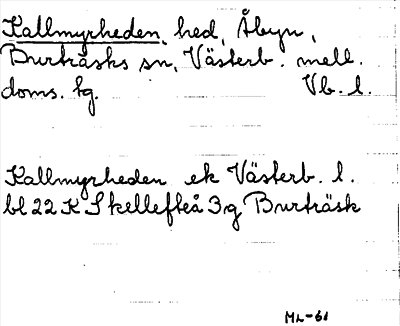 Kallmyrheden, hed, Åbyn,
Burträsks sn, Västerb. mell.
doms. hg. Vb. l.
Kallmyrheden ek Västerb. l.
bl 22 K Skellefteå 3g Burträsk
ML-61